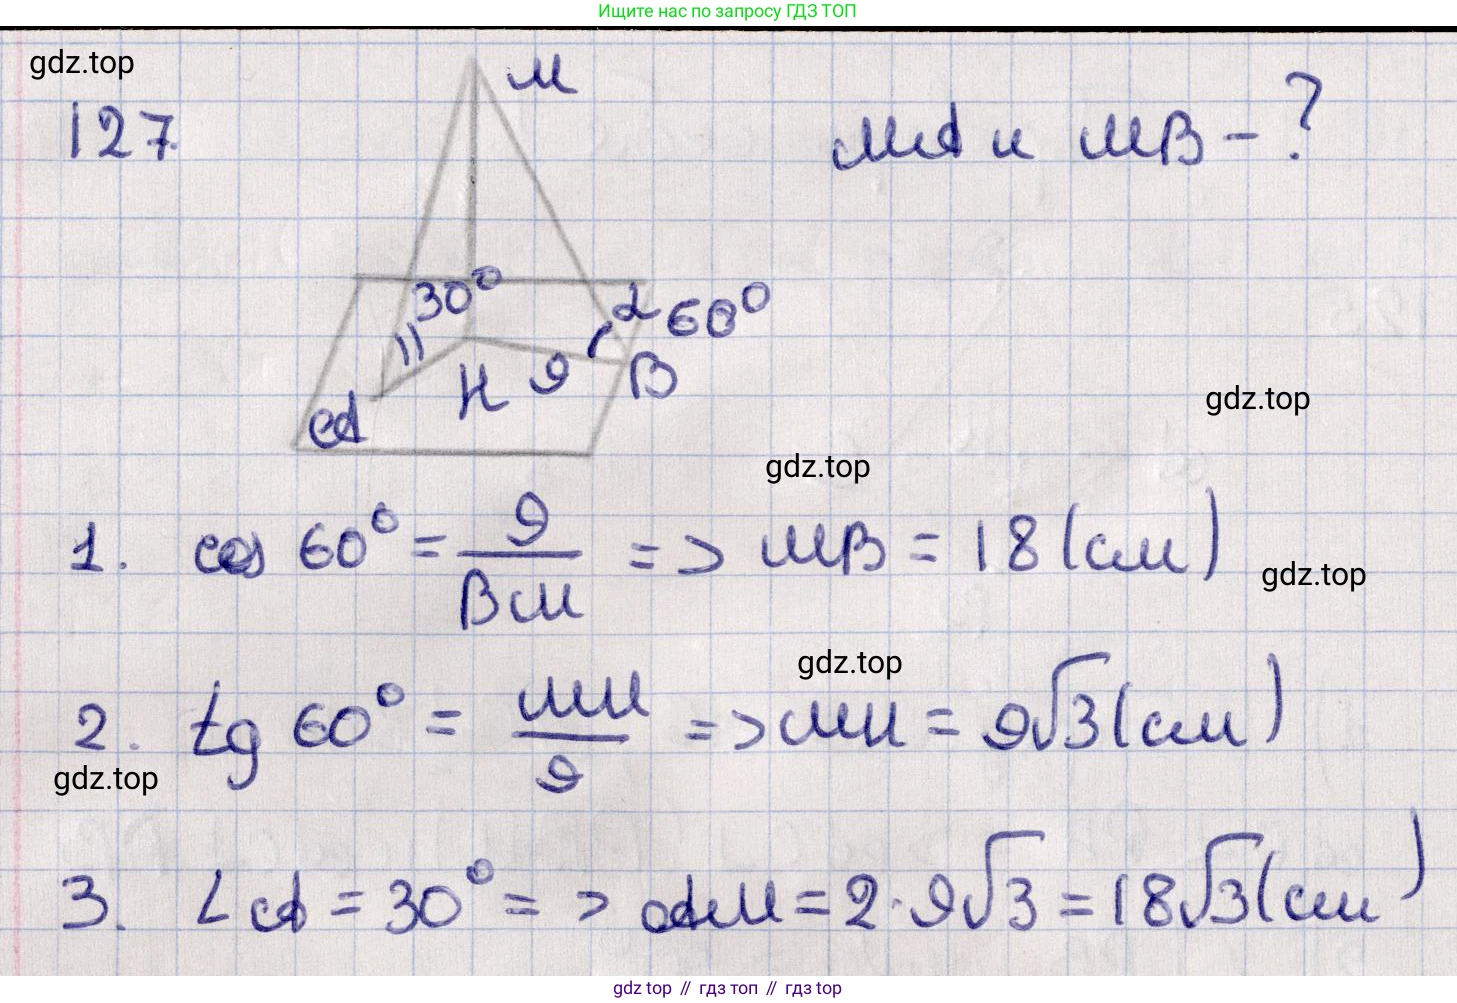 Ищите нас по запросу ГДЗ ТОП
gdz.top
127.
M
МА и МВ - ?
30°
α 60°
A
H
9
B
gdz.top
gdz.top
1. cos 60° = 9/BM => MB = 18 (см)
gdz.top
gdz.top
2. tg 60° = MH/9 => MH = 9√3 (см)
gdz.top
3. ∠A = 30° => AM = 2·9√3 = 18√3 (см)
gdz top // гдз топ // gdz top